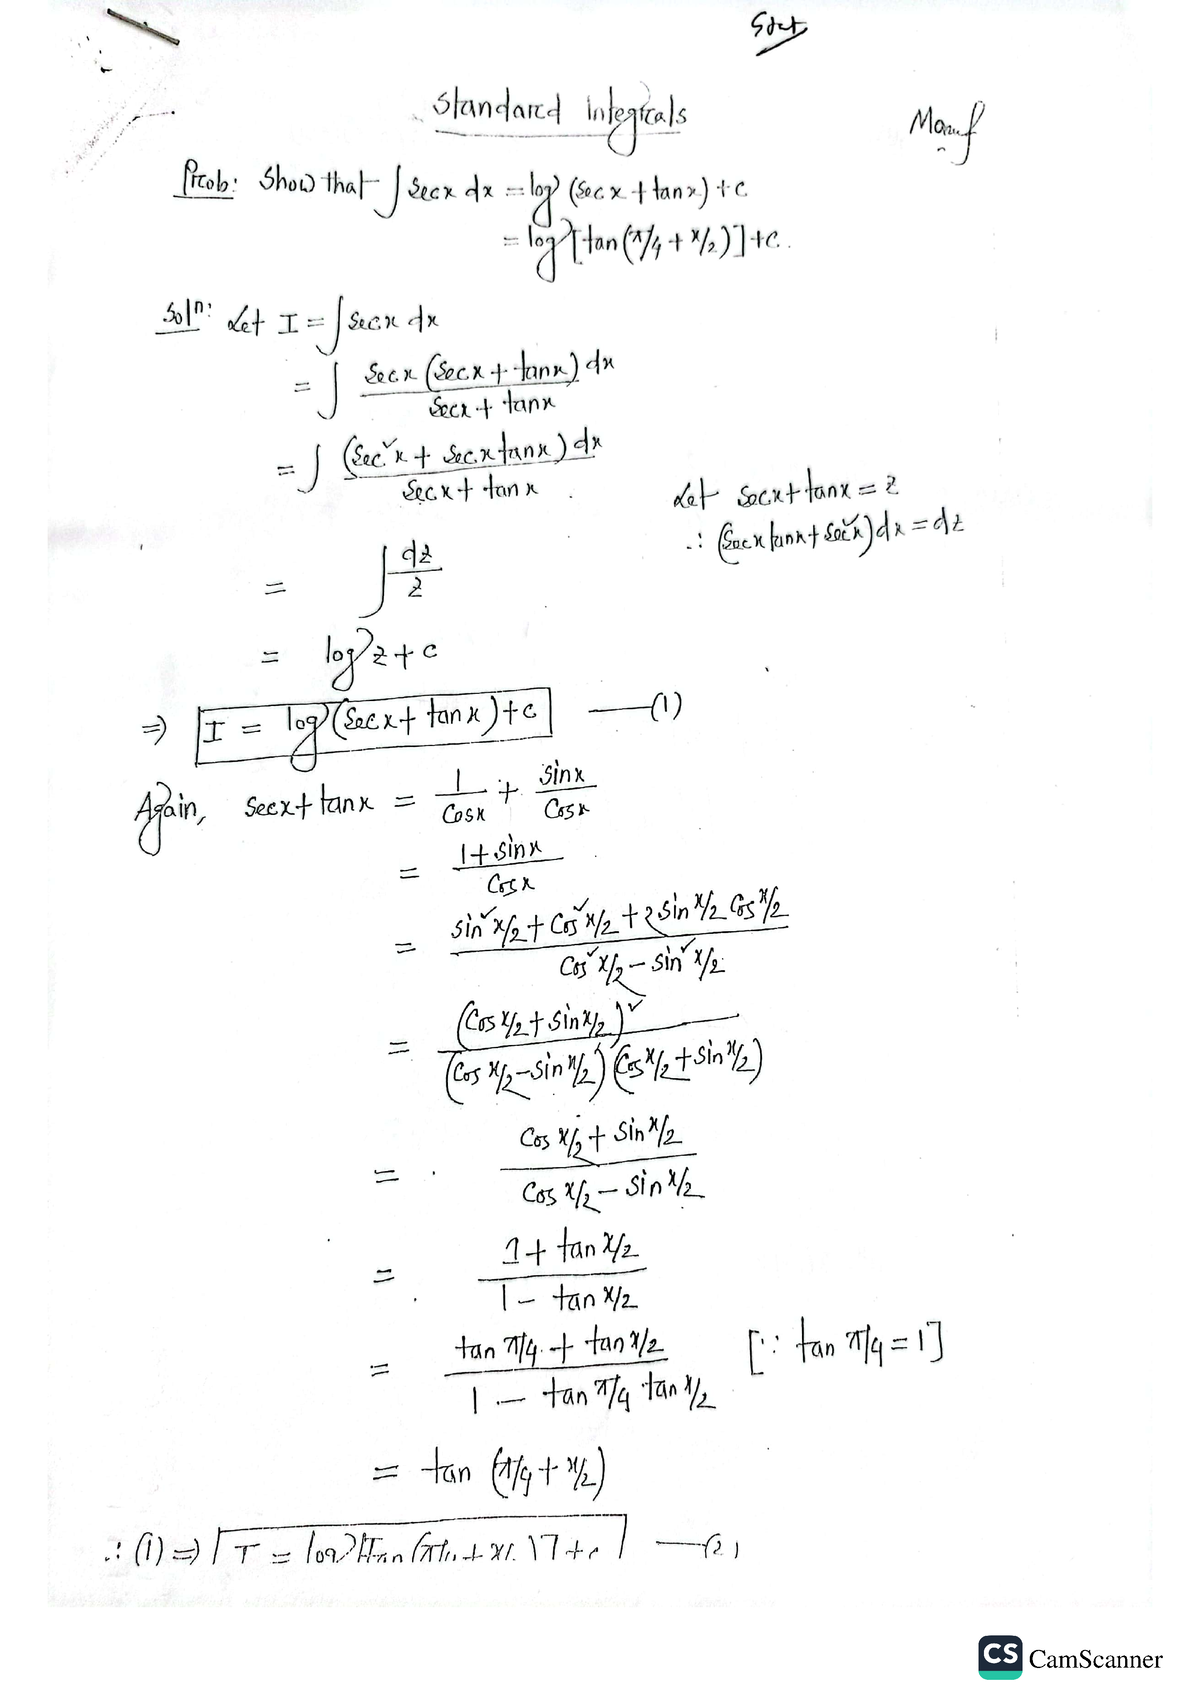 Stat
Standard integrals
Maruf
Prob: Show that ∫ Secx dx = log (Secx + tanx) + c
= log [tan(π/4 + x/2)] + c.
Soln: Let I = ∫ Secx dx
= ∫ Secx (Secx + tanx) dx / Secx + tanx
= ∫ (Sec²x + Secx tanx) dx / Secx + tanx
Let Secx + tanx = z
∴ (Secx tanx + Sec²x) dx = dz
= ∫ dz/z
= log z + c
⇒ I = log (Secx + tanx) + c —(1)
Again, Secx + tanx = 1/Cosx + Sinx/Cosx
= 1 + Sinx / Cosx
= Sin²x/2 + Cos²x/2 + 2Sinx/2 Cosx/2 / Cos²x/2 − Sin²x/2
= (Cosx/2 + Sinx/2)² / (Cosx/2 − Sinx/2) (Cosx/2 + Sinx/2)
= Cosx/2 + Sinx/2 / Cosx/2 − Sinx/2
= 1 + tanx/2 / 1 − tanx/2
= tanπ/4 + tanx/2 / 1 − tanπ/4 tanx/2 [∵ tanπ/4 = 1]
= tan (π/4 + x/2)
∴ (1) ⇒ I = log [tan (π/4 + x/2)] + c —(2)
CS CamScanner